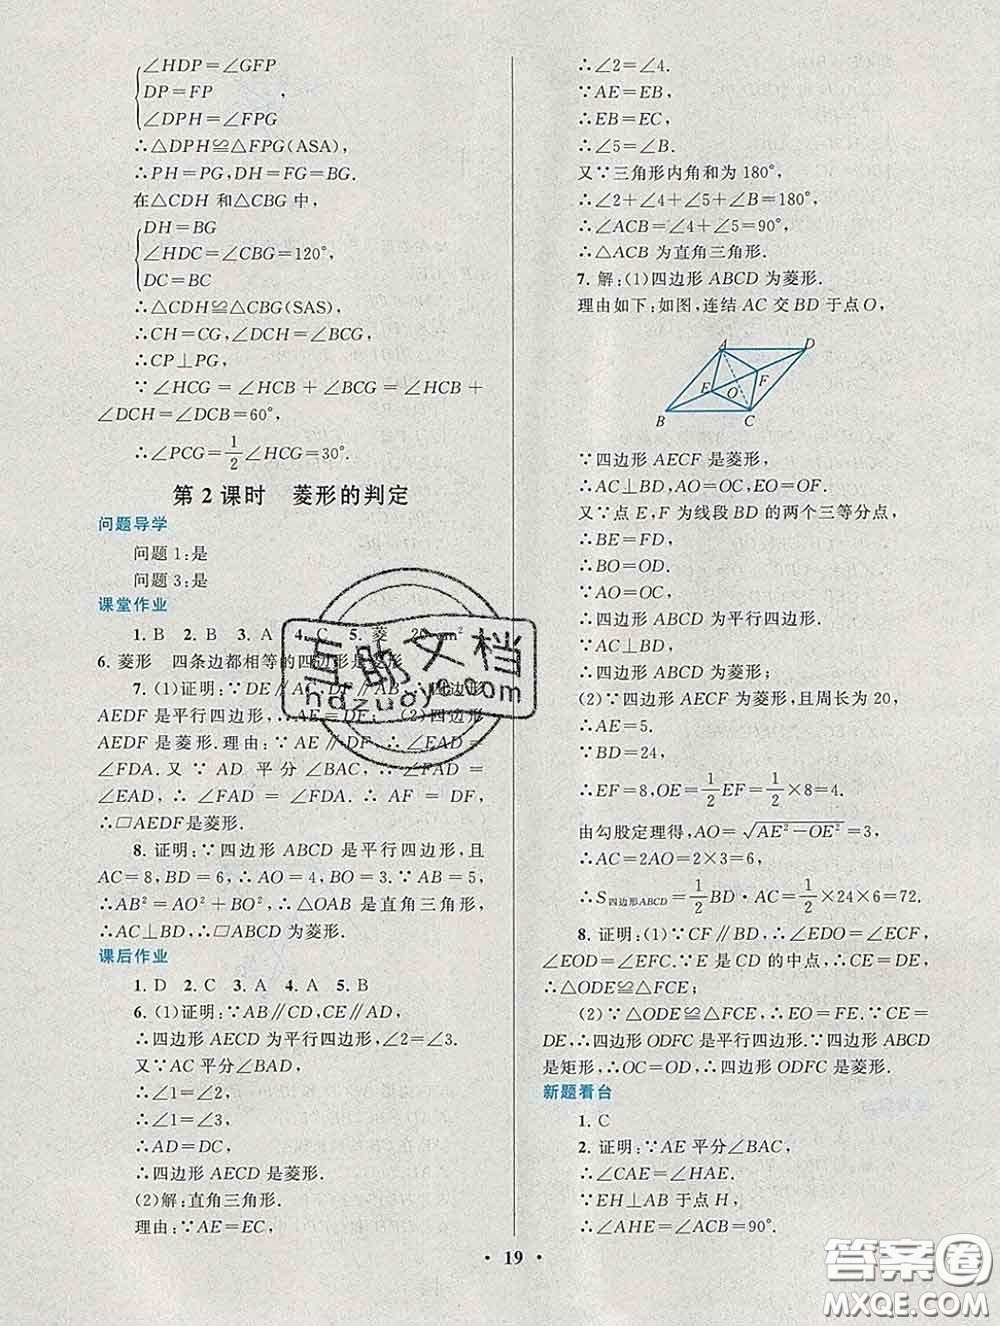 ∠HDP=∠GFP
DP=FP ,
∠DPH=∠FPG
∴△DPH≌△FPG(ASA).
∴PH=PG,DH=FG=BG.
在△CDH 和△CBG 中,
DH=BG
∠HDC=∠CBG=120°,
DC=BC
∴△CDH≌△CBG(SAS).
∴CH=CG,∠DCH=∠BCG.
∴CP⊥PG.
∵∠HCG=∠HCB+∠BCG=∠HCB+
∠DCH=∠DCB=60°,
∴∠PCG=1/2∠HCG=30°.
第 2 课时 菱形的判定
问题导学
问题 1:是
问题 3:是
课堂作业
1. B 2. B 3. A 4. C 5. 菱 cm²
6. 菱形 四条边都相等的四边形是菱形
7. (1)证明:∵DE∥AC,DF∥AB,∴四边形
AEDF 是平行四边形,∴AE=DF; (2)四边形
AEDF 是菱形.理由:∵AE∥DF,∴∠EAD=
∠FDA.又∵AD 平分∠BAC,∴∠FAD=
∠EAD,∴∠FAD=∠FDA.∴AF=DF,
∴▱AEDF是菱形.
8. 证明:∵四边形 ABCD 是平行四边形,且
AC=8,BD=6,∴AO=4,BO=3.∵AB=5,
∴AB²=AO²+BO².∴△OAB 是直角三角形,
∴AC⊥BD,∴▱ABCD 为菱形.
课后作业
1. D 2. C 3. A 4. A 5. B
6. (1)证明:∵AB∥CD,CE∥AD,
∴四边形 AECD 为平行四边形,∠2=∠3.
又∵AC 平分∠BAD,
∴∠1=∠2,
∴∠1=∠3,
∴AD=DC,
∴四边形 AECD 是菱形.
(2)解:直角三角形.
理由:∵AE=EC,
∴∠2=∠4.
∵AE=EB,
∴EB=EC,
∴∠5=∠B.
又∵三角形内角和为 180°,
∴∠2+∠4+∠5+∠B=180°,
∴∠ACB=∠4+∠5=90°,
∴△ACB 为直角三角形.
7. 解:(1)四边形 ABCD 为菱形.
理由如下:如图,连结 AC 交 BD 于点 O,
A D
E F
O
B C
∵四边形 AECF 是菱形,
∴AC⊥BD,AO=OC,EO=OF.
又∵点 E,F 为线段 BD 的两个三等分点,
∴BE=FD,
∴BO=OD.
∵AO=OC,
∴四边形 ABCD 为平行四边形.
∵AC⊥BD,
∴四边形 ABCD 为菱形.
(2)∵四边形 AECF 为菱形,且周长为 20,
∴AE=5.
∵BD=24,
∴EF=8,OE=1/2EF=1/2×8=4.
由勾股定理得,AO=√(AE²−OE²)=3,
∴AC=2AO=2×3=6,
∴S四边形ABCD=1/2BD·AC=1/2×24×6=72.
8. 证明:(1)∵CF∥BD,∴∠EDO=∠ECF,
∠EOD=∠EFC.∵E 是 CD 的中点,∴CE=DE,
∴△ODE≌△FCE;
(2)∵△ODE≌△FCE,∴EO=FE.∵CE=
DE,∴四边形 ODFC 是平行四边形.∵四边形 ABCD
是矩形,∴OC=OD,∴四边形 ODFC 是菱形.
新题看台
1. C
2. 证明:∵AE 平分∠BAC,
∴∠CAE=∠HAE.
∵EH⊥AB 于点 H,
∴∠AHE=∠ACB=90°.
• 19 •
互助文档
hdzuoye.com
答案圈
MXQE.COM